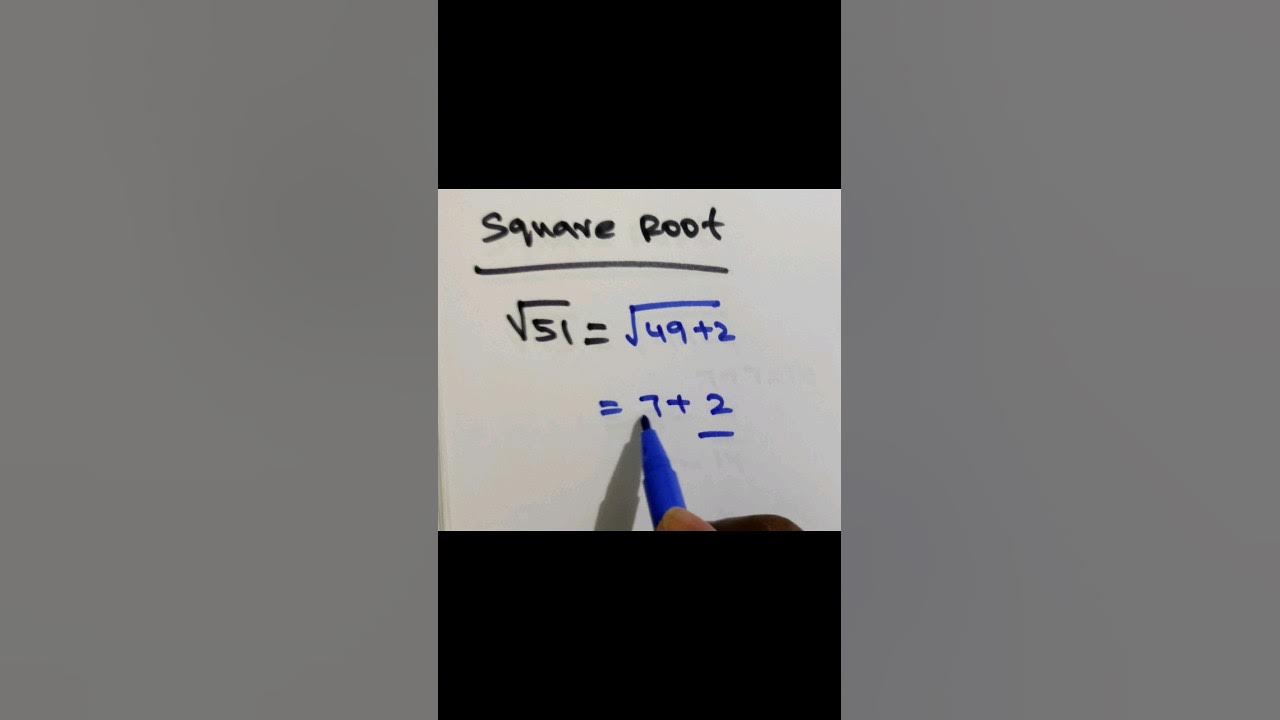 Square Root
√51 = √49+2
= 7 + 2